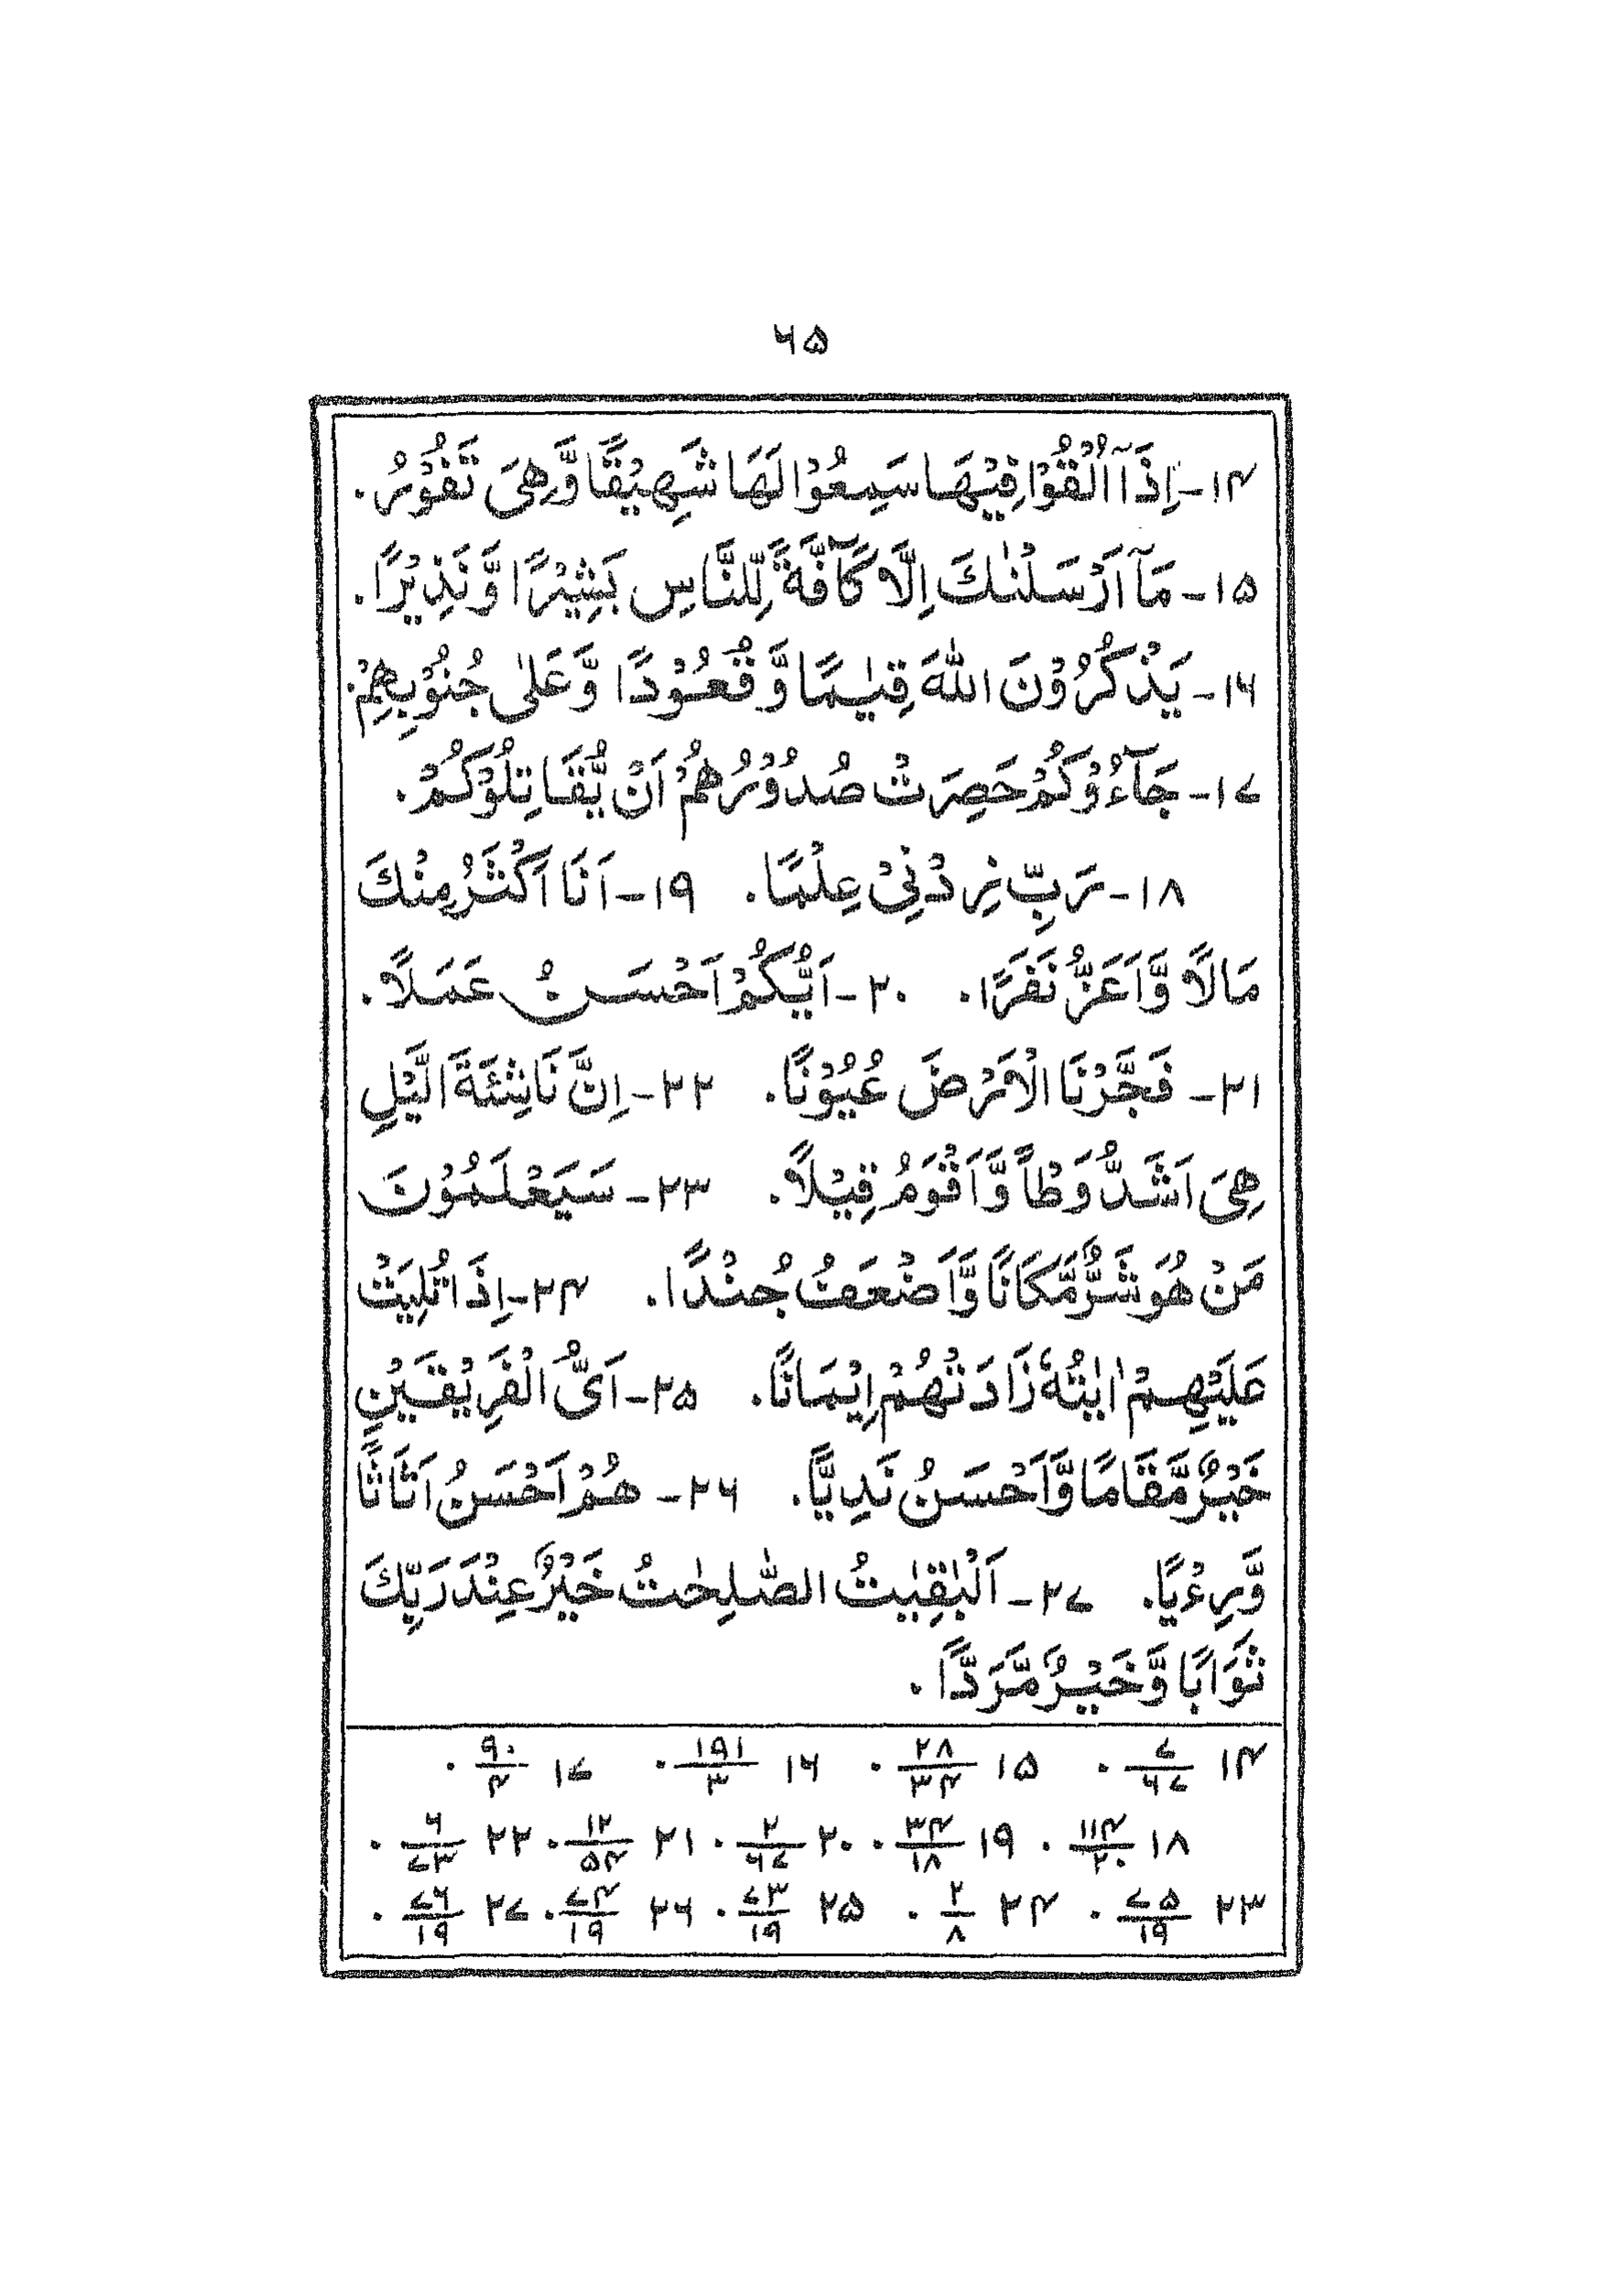 ۶۵
۱۴- اِذَآ اُلْقُوْا فِيْهَا سَمِعُوْا لَهَا شَهِيْقًا وَّهِىَ تَفُوْرُ.
۱۵- مَآ اَرْسَلْنٰكَ اِلَّا كَآفَّةً لِّلنَّاسِ بَشِيْرًا وَّنَذِيْرًا.
۱۶- يَذْكُرُوْنَ اللّٰهَ قِيٰمًا وَّقُعُوْدًا وَّعَلٰى جُنُوْبِهِمْ.
۱۷- جَآءُوْكُمْ حَصِرَتْ صُدُوْرُهُمْ اَنْ يُّقَاتِلُوْكُمْ.
۱۸- رَبِّ زِدْنِىْ عِلْمًا. ۱۹- اَنَا اَكْثَرُ مِنْكَ
مَالًا وَّاَعَزُّ نَفَرًا. ۲۰- اَيُّكُمْ اَحْسَنُ عَمَلًا.
۲۱- فَجَّرْنَا الْاَرْضَ عُيُوْنًا. ۲۲- اِنَّ نَاشِئَةَ الَّيْلِ
هِىَ اَشَدُّ وَطْاً وَّاَقْوَمُ قِيْلًا. ۲۳- سَيَعْلَمُوْنَ
مَنْ هُوَ شَرٌّ مَّكَانًا وَّاَضْعَفُ جُنْدًا. ۲۴- اِذَا تُلِيَتْ
عَلَيْهِمْ اٰيٰتُهٗ زَادَتْهُمْ اِيْمَانًا. ۲۵- اَىُّ الْفَرِيْقَيْنِ
خَيْرٌ مَّقَامًا وَّاَحْسَنُ نَدِيًّا. ۲۶- هُمْ اَحْسَنُ اَثَاثًا
وَّرِءْيًا. ۲۷- اَلْبٰقِيٰتُ الصّٰلِحٰتُ خَيْرٌ عِنْدَ رَبِّكَ
ثَوَابًا وَّخَيْرٌ مَّرَدًّا.
۱۴ ۷/۶۷. ۱۵ ۲۸/۳۴. ۱۶ ۱۹۱/۳. ۱۷ ۹۰/۴.
۱۸ ۱۱۴/۲۰. ۱۹ ۳۴/۱۸. ۲۰ ۲/۶۷. ۲۱ ۱۲/۵۴. ۲۲ ۶/۷۳.
۲۳ ۷۵/۱۹. ۲۴ ۲/۸. ۲۵ ۷۳/۱۹. ۲۶ ۷۴/۱۹. ۲۷ ۷۶/۱۹.